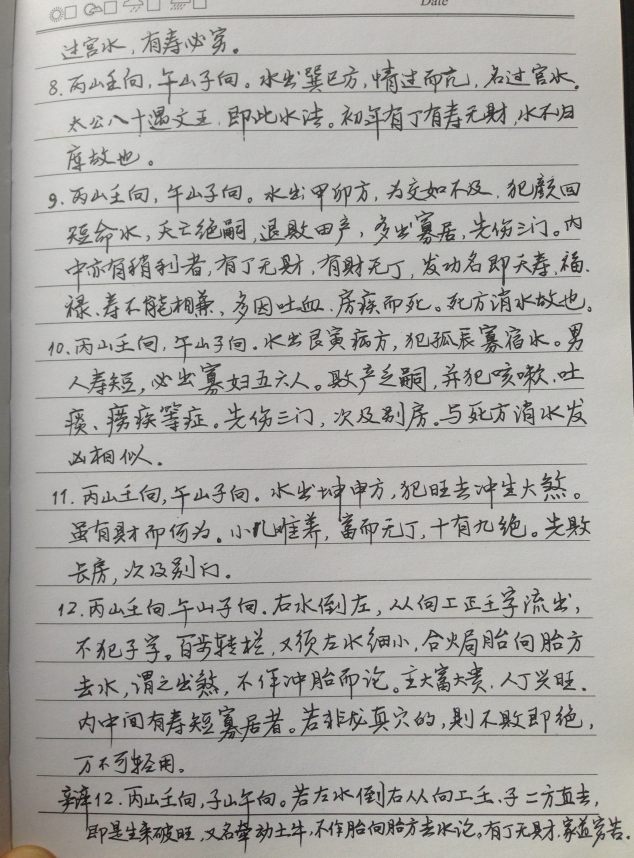 Date
过宫水，有寿必穷。
8. 丙山壬向，午山子向。水出巽巳方，情过而亢，名过宫水。
太公八十遇文王，即此水法。初年有丁有寿无财，水不归
库故也。
9. 丙山壬向，午山子向。水出甲卯方，为交如不及，犯颜回
短命水，夭亡绝嗣，退败田产，多出寡居，先伤三门。内
中亦有稍利者，有丁无财，有财无丁，发功名即夭寿，福、
禄、寿不能相兼，多因吐血、房疾而死。死方消水故也。
10. 丙山壬向，午山子向。水出艮寅病方，犯孤辰寡宿水。男
人寿短，必出寡妇五六人。败产乏嗣，并犯咳嗽、吐
痰、痨疾等症。先伤三门，次及别房。与死方消水发
凶相似。
11. 丙山壬向，午山子向。水出坤申方，犯旺去冲生大煞。
虽有财而何为。小儿难养，富而无丁，十有九绝。先败
长房，次及别门。
12. 丙山壬向午山子向。右水倒左，从向上正壬字流出，
不犯子字。百步转栏，又须左水细小，合火局胎向胎方
去水，谓之出煞，不作冲胎而论。主大富大贵，人丁兴旺。
内中间有寿短寡居者。若非龙真穴的，则不败即绝，
万不可轻用。
辩12. 丙山壬向，子山午向。若左水倒右从向上壬、子二方直去，
即是生来破旺，又名牵动土牛，不作胎向胎方去水论。有丁无财，家道穷苦.